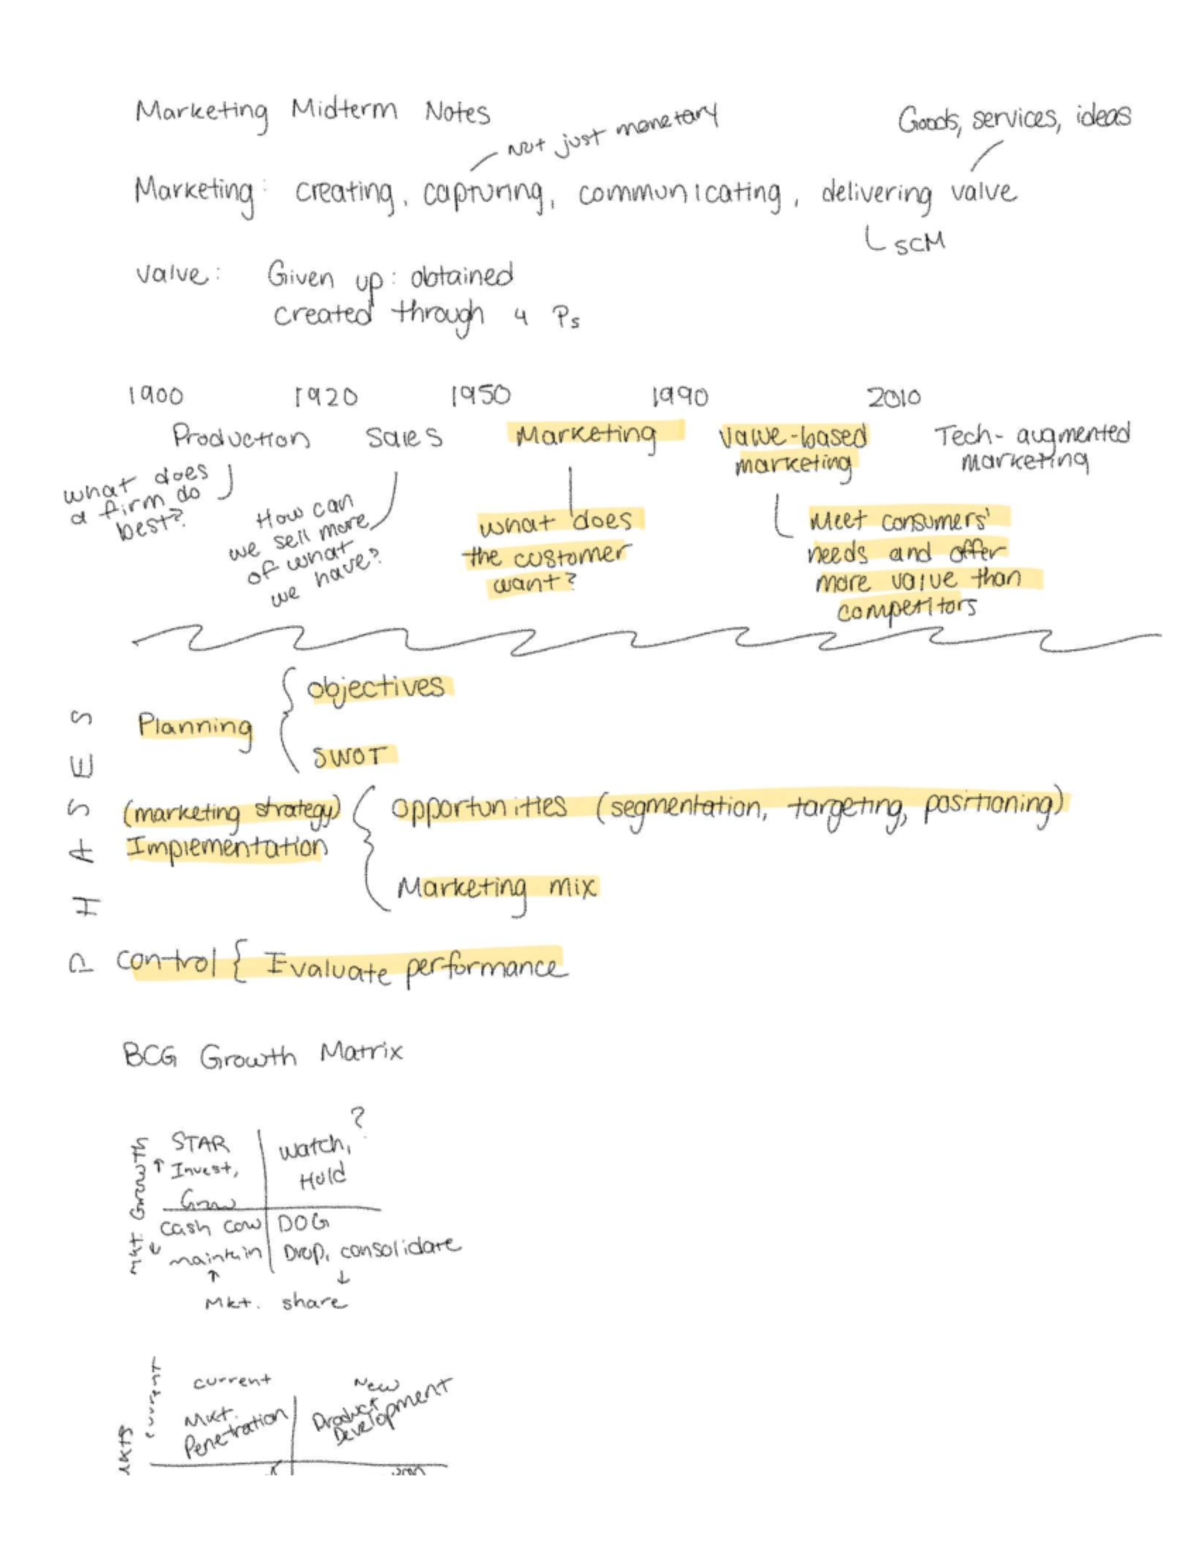 Marketing Midterm Notes
Not just monetary
Goods, services, ideas
Marketing: creating, capturing, communicating, delivering value
SCM
Value: Given up: obtained
created through 4 Ps
1900 1920 1950 1990 2010
Production Sales Marketing Value-based marketing Tech-augmented marketing
what does
a firm do
best?
How can
we sell more
of what
we have?
what does
the customer
want?
Meet consumers'
needs and offer
more value than
competitors
PHASES
Planning { objectives
SWOT
(marketing strategy) { opportunities (segmentation, targeting, positioning)
Implementation
Marketing mix
control { Evaluate performance
BCG Growth Matrix
Mkt Growth
↑ ↓
STAR
Invest,
Grow
?
watch,
Hold
cash cow
maintain
DOG
Drop, consolidate
↑ ↓
Mkt. share
current New
current
Mkt.
Penetration
Product
Development